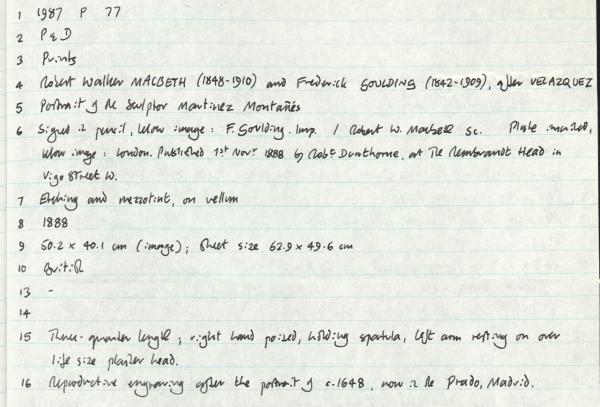 1 1987 P 77
2 P & D
3 Prints
4 Robert Walker MACBETH (1848-1910) and Frederick GOULDING (1842-1909), after VELAZQUEZ
5 Portrait of the Sculptor Martinez Montañés
6 Signed in pencil, below image: F. Goulding. Imp. / Robert W. Macbeth sc. Plate inscribed,
below image: London. Published 1st Novr 1888 by Robt Dunthorne, at The Rembrandt Head in
Vigo Street W.
7 Etching and mezzotint, on vellum
8 1888
9 50.2 x 40.1 cm (image); sheet size 62.9 x 49.6 cm
10 British
13 -
14
15 Three-quarter length; right hand poized, holding spatula, left arm resting on over
life size plaster head.
16 Reproductive engraving after the portrait of c.1648, now in the Prado, Madrid.